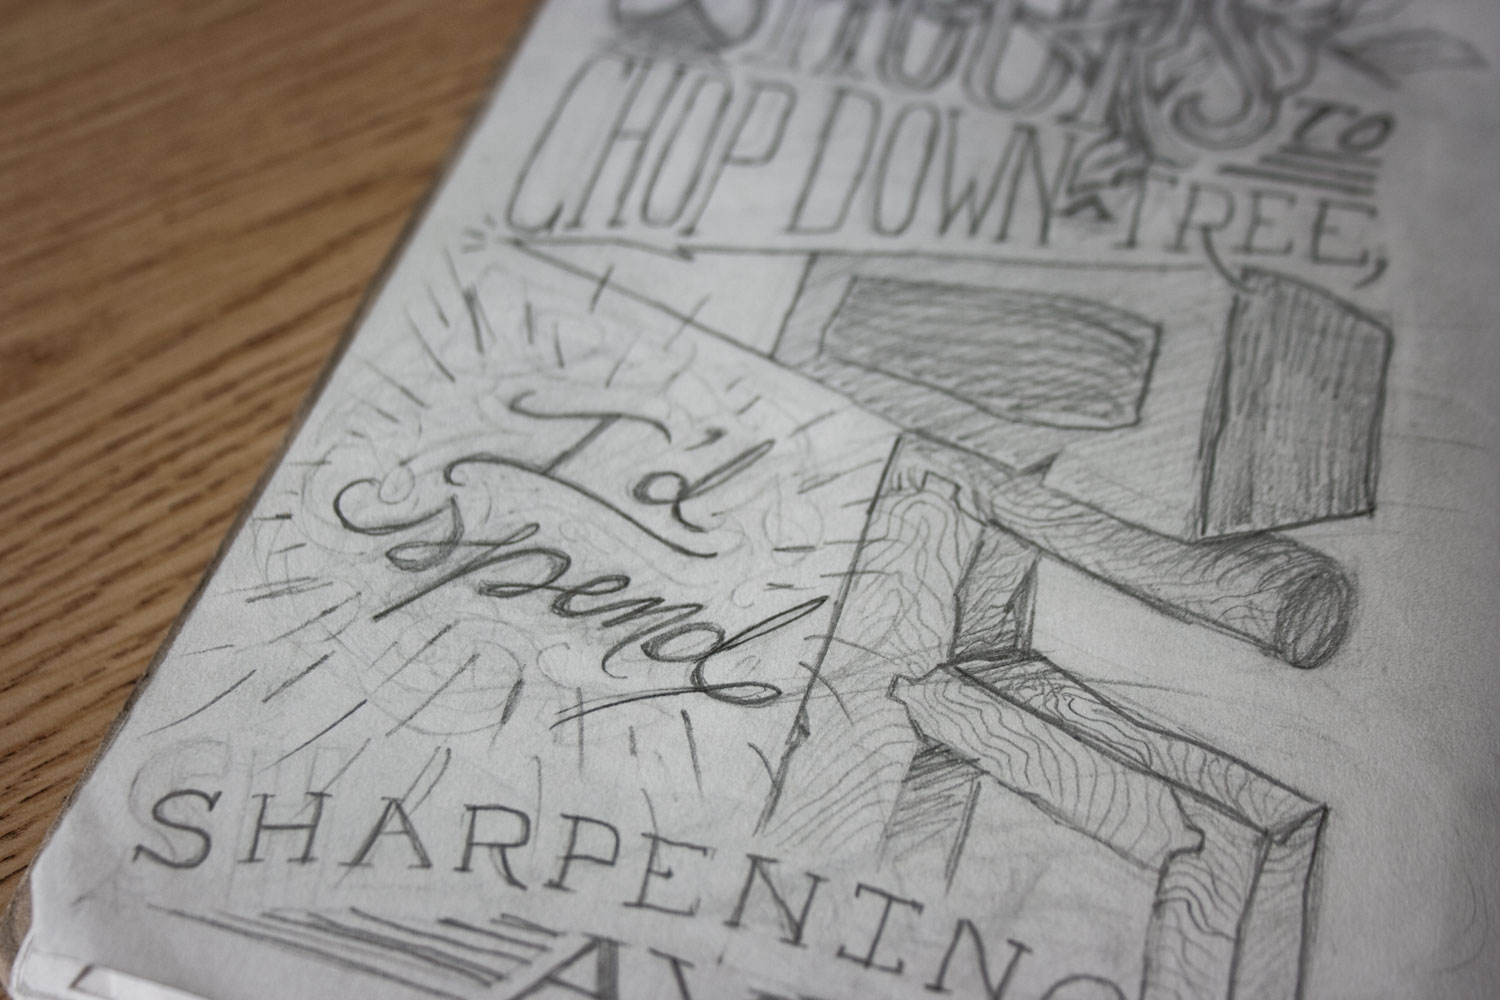 TO
CHOP DOWN A TREE,
I'd
spend
SHARPENING